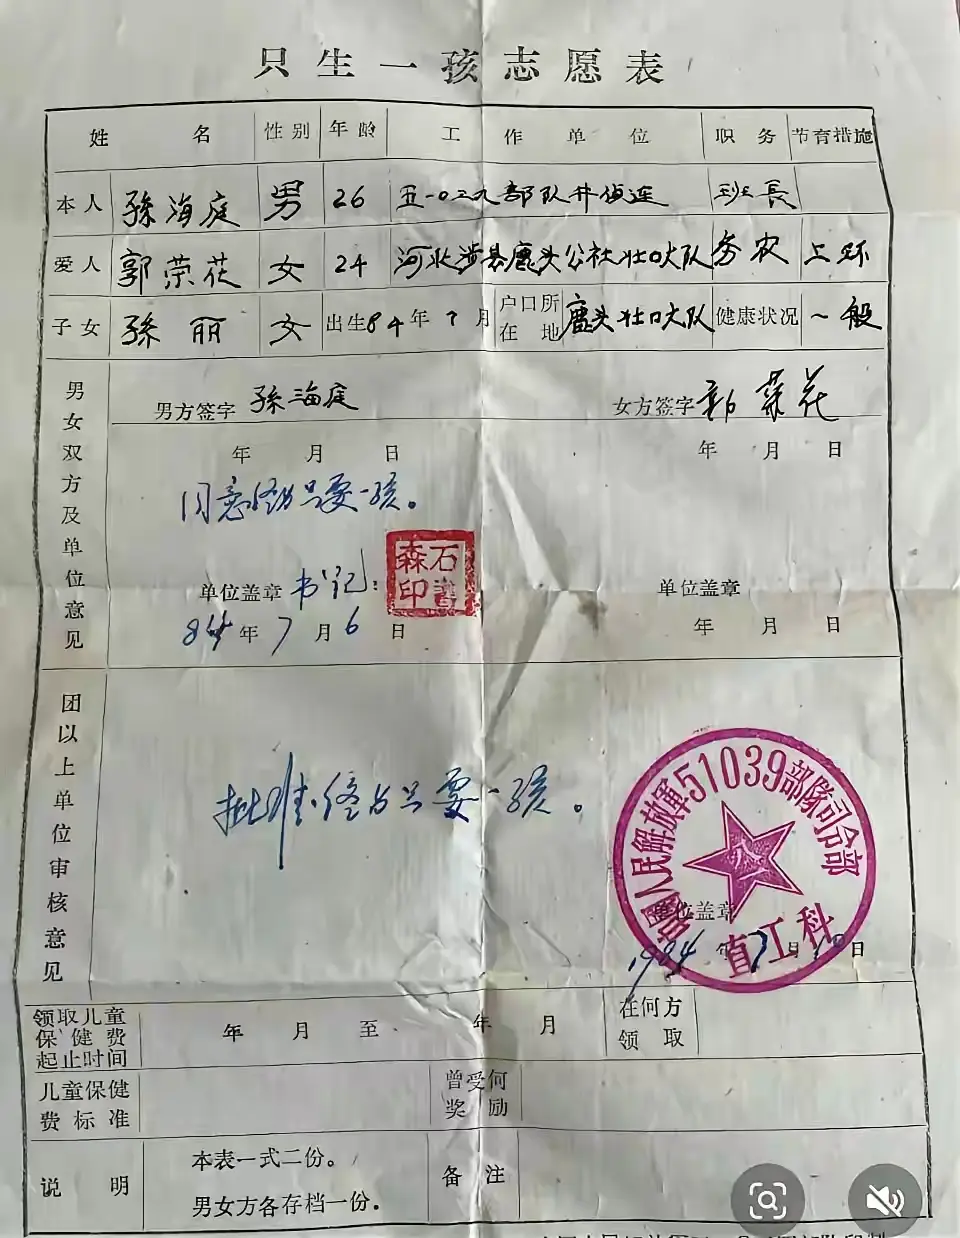 只生一孩志愿表
姓名 性别 年龄 工作单位 职务 节育措施
本人 孫海庭 男 26 五一0三九部队井侦连 班長
爱人 郭荣花 女 24 河北涉县鹿头公社壮口大队 务农 上环
子女 孫丽 女 出生84年7月 户口所在地 鹿头壮口大队 健康状况 一般
男女双方及单位意见
男方签字 孫海庭 女方签字 郭荣花
年 月 日 年 月 日
同意终身只要一孩。
单位盖章 书记: 单位盖章
石書森印
84年7月6日 年 月 日
团以上单位审核意见
批准终身只要一孩。
中國人民解放軍51039部隊司令部
八一
直工科
单位盖章
1984年7月10日
领取儿童保健费起止时间 年 月 至 年 月 在何方领取
儿童保健费标准 曾受何奖励
说明 本表一式二份。 备注
男女方各存档一份.